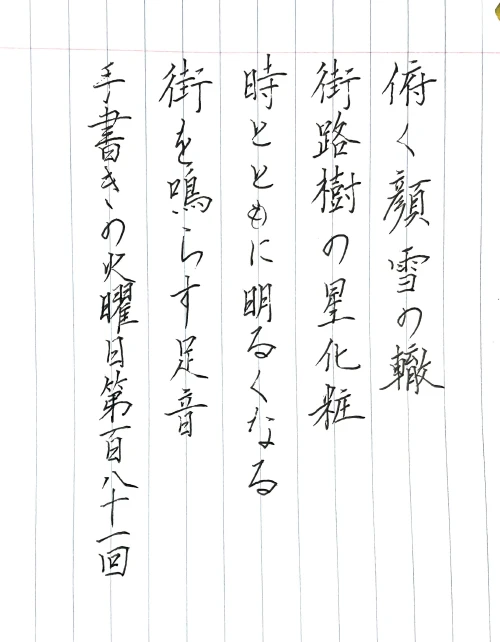 俯く顔雪の轍
街路樹の星化粧
時とともに明るくなる
街を鳴らす足音
手書きの火曜日第百八十一回